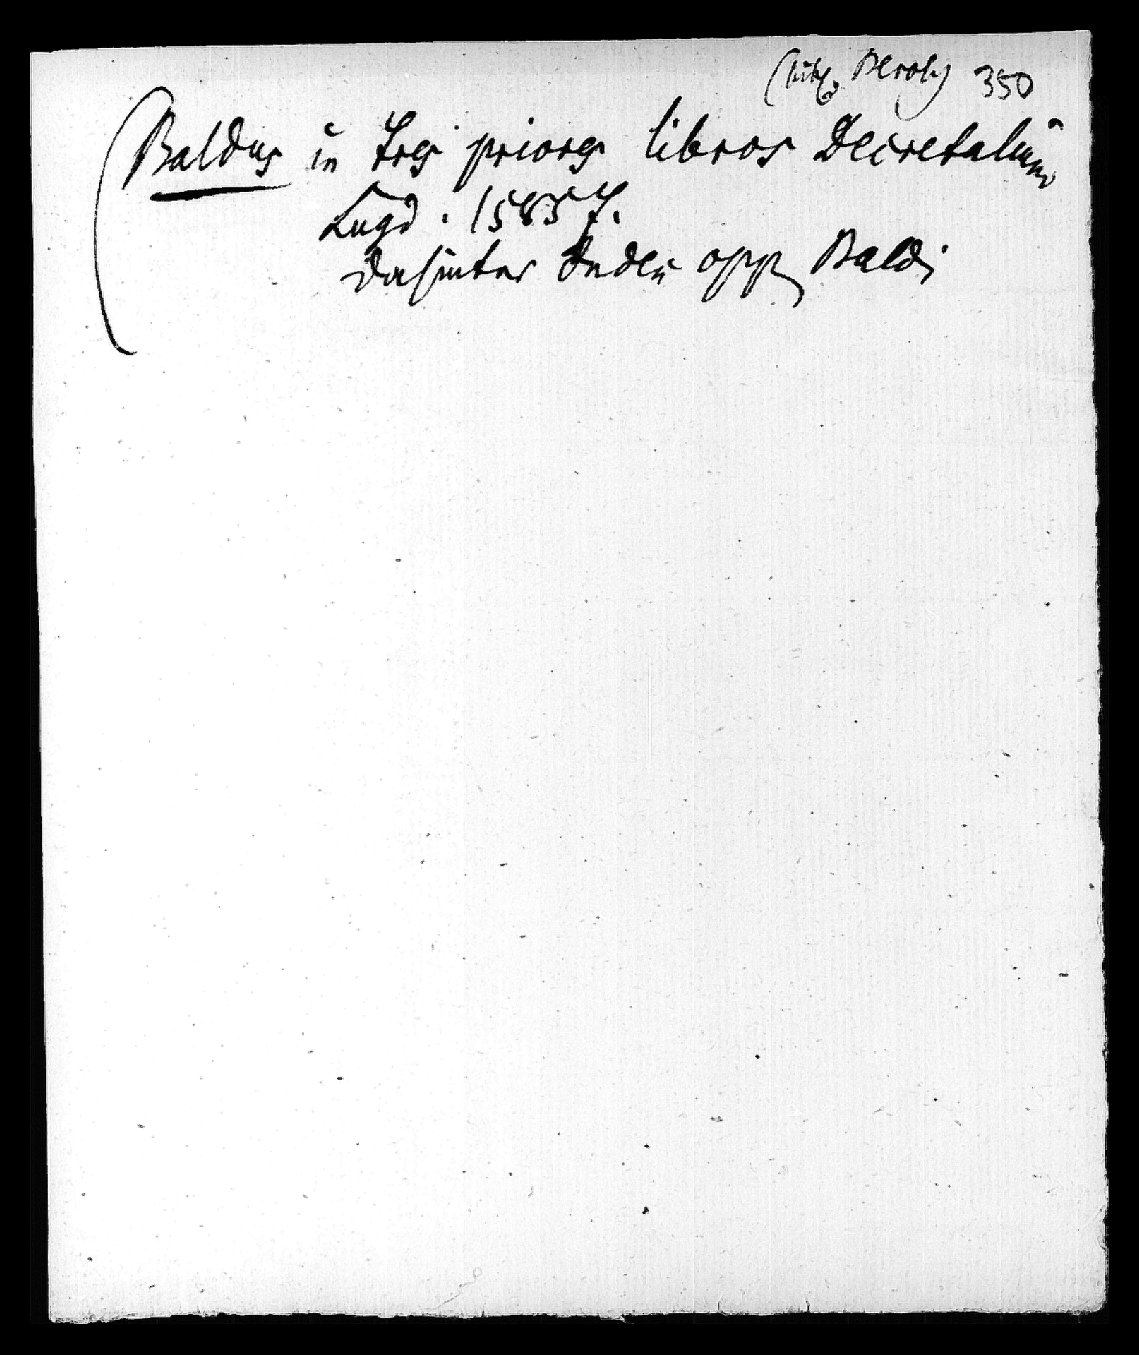 (bibl. Berol) 350
Baldus in tres priores libros Decretalium
Lugd. 1585 f.
dahinter Index opp Baldi